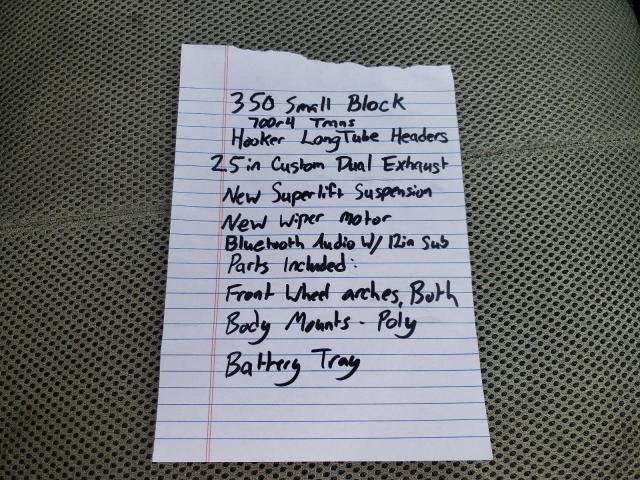 350 Small Block
700r4 Trans
Hooker LongTube Headers
2.5in Custom Dual Exhaust
New Superlift Suspension
New Wiper Motor
Bluetooth Audio W/ 12in Sub
Parts Included:
Front Wheel arches, Both
Body Mounts - Poly
Battery Tray